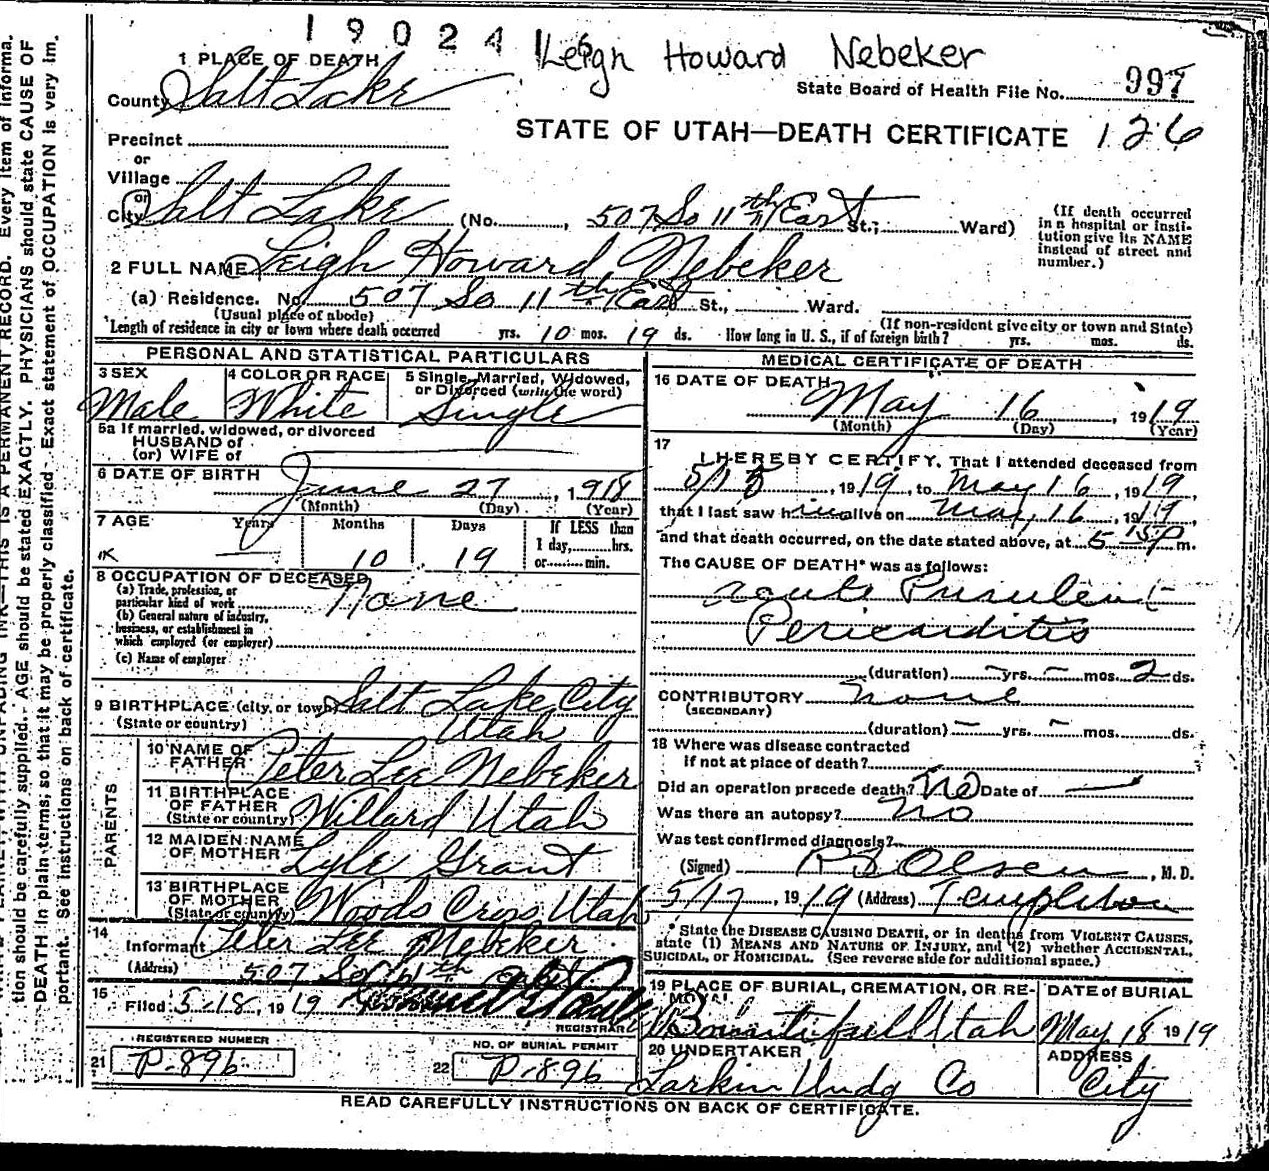 19024
Leigh Howard Nebeker
1 PLACE OF DEATH
County Salt Lake
State Board of Health File No. 997
STATE OF UTAH—DEATH CERTIFICATE 126
Precinct
or
Village
or
City Salt Lake (No. , 507 So 11th East St.; Ward)
(If death occurred in a hospital or institution give its NAME instead of street and number.)
2 FULL NAME Leigh Howard Nebeker
(a) Residence. No. 507 So 11th East St., Ward.
(Usual place of abode) (If non-resident give city or town and State)
Length of residence in city or town where death occurred yrs. 10 mos. 19 ds. How long in U. S., if of foreign birth? yrs. mos. ds.
PERSONAL AND STATISTICAL PARTICULARS
3 SEX Male
4 COLOR OR RACE White
5 Single, Married, Widowed, or Divorced (write the word) Single
5a If married, widowed, or divorced
HUSBAND of
(or) WIFE of
6 DATE OF BIRTH June 27, 1918
(Month) (Day) (Year)
7 AGE Years — Months 10 Days 19 If LESS than
1 day, hrs.
or min.
8 OCCUPATION OF DECEASED
(a) Trade, profession, or particular kind of work None
(b) General nature of industry, business, or establishment in which employed (or employer)
(c) Name of employer
9 BIRTHPLACE (city, or town) Salt Lake City
(State or country) Utah
PARENTS
10 NAME OF FATHER Peter Lee Nebeker
11 BIRTHPLACE OF FATHER (State or country) Willard Utah
12 MAIDEN NAME OF MOTHER Lyle Grant
13 BIRTHPLACE OF MOTHER (State or country) Woods Cross, Utah
14 Informant Peter Lee Nebeker
(Address) 507 So
15 Filed 5-18, 1919
REGISTRAR
REGISTERED NUMBER
21 P-896
NO. OF BURIAL PERMIT
22 P-896
MEDICAL CERTIFICATE OF DEATH
16 DATE OF DEATH May 16, 1919
(Month) (Day) (Year)
17
I HEREBY CERTIFY, That I attended deceased from
5/15, 1919, to May 16, 1919,
that I last saw him alive on May 16, 1919
and that death occurred, on the date stated above, at 5 15 P m.
The CAUSE OF DEATH* was as follows:
acute Purulent
Pericarditis
(duration) — yrs. — mos. 2 ds.
CONTRIBUTORY none
(SECONDARY)
(duration) — yrs. — mos. ds.
18 Where was disease contracted
if not at place of death?
Did an operation precede death? No Date of —
Was there an autopsy? No
Was test confirmed diagnosis?
(Signed) Olsen, M. D.
5/17, 1919 (Address) Templeton
* State the DISEASE CAUSING DEATH, or in deaths from VIOLENT CAUSES,
state (1) MEANS AND NATURE OF INJURY, and (2) whether ACCIDENTAL,
SUICIDAL, or HOMICIDAL. (See reverse side for additional space.)
19 PLACE OF BURIAL, CREMATION, OR REMOVAL Bountiful Utah
DATE of BURIAL May 18 1919
20 UNDERTAKER Larkin Undg Co
ADDRESS City
READ CAREFULLY INSTRUCTIONS ON BACK OF CERTIFICATE.
THIS IS A PERMANENT RECORD. Every item of informa-
tion should be carefully supplied. AGE should be stated EXACTLY. PHYSICIANS should state CAUSE OF
DEATH in plain terms, so that it may be properly classified. Exact statement of OCCUPATION is very im-
portant. See instructions on back of certificate.